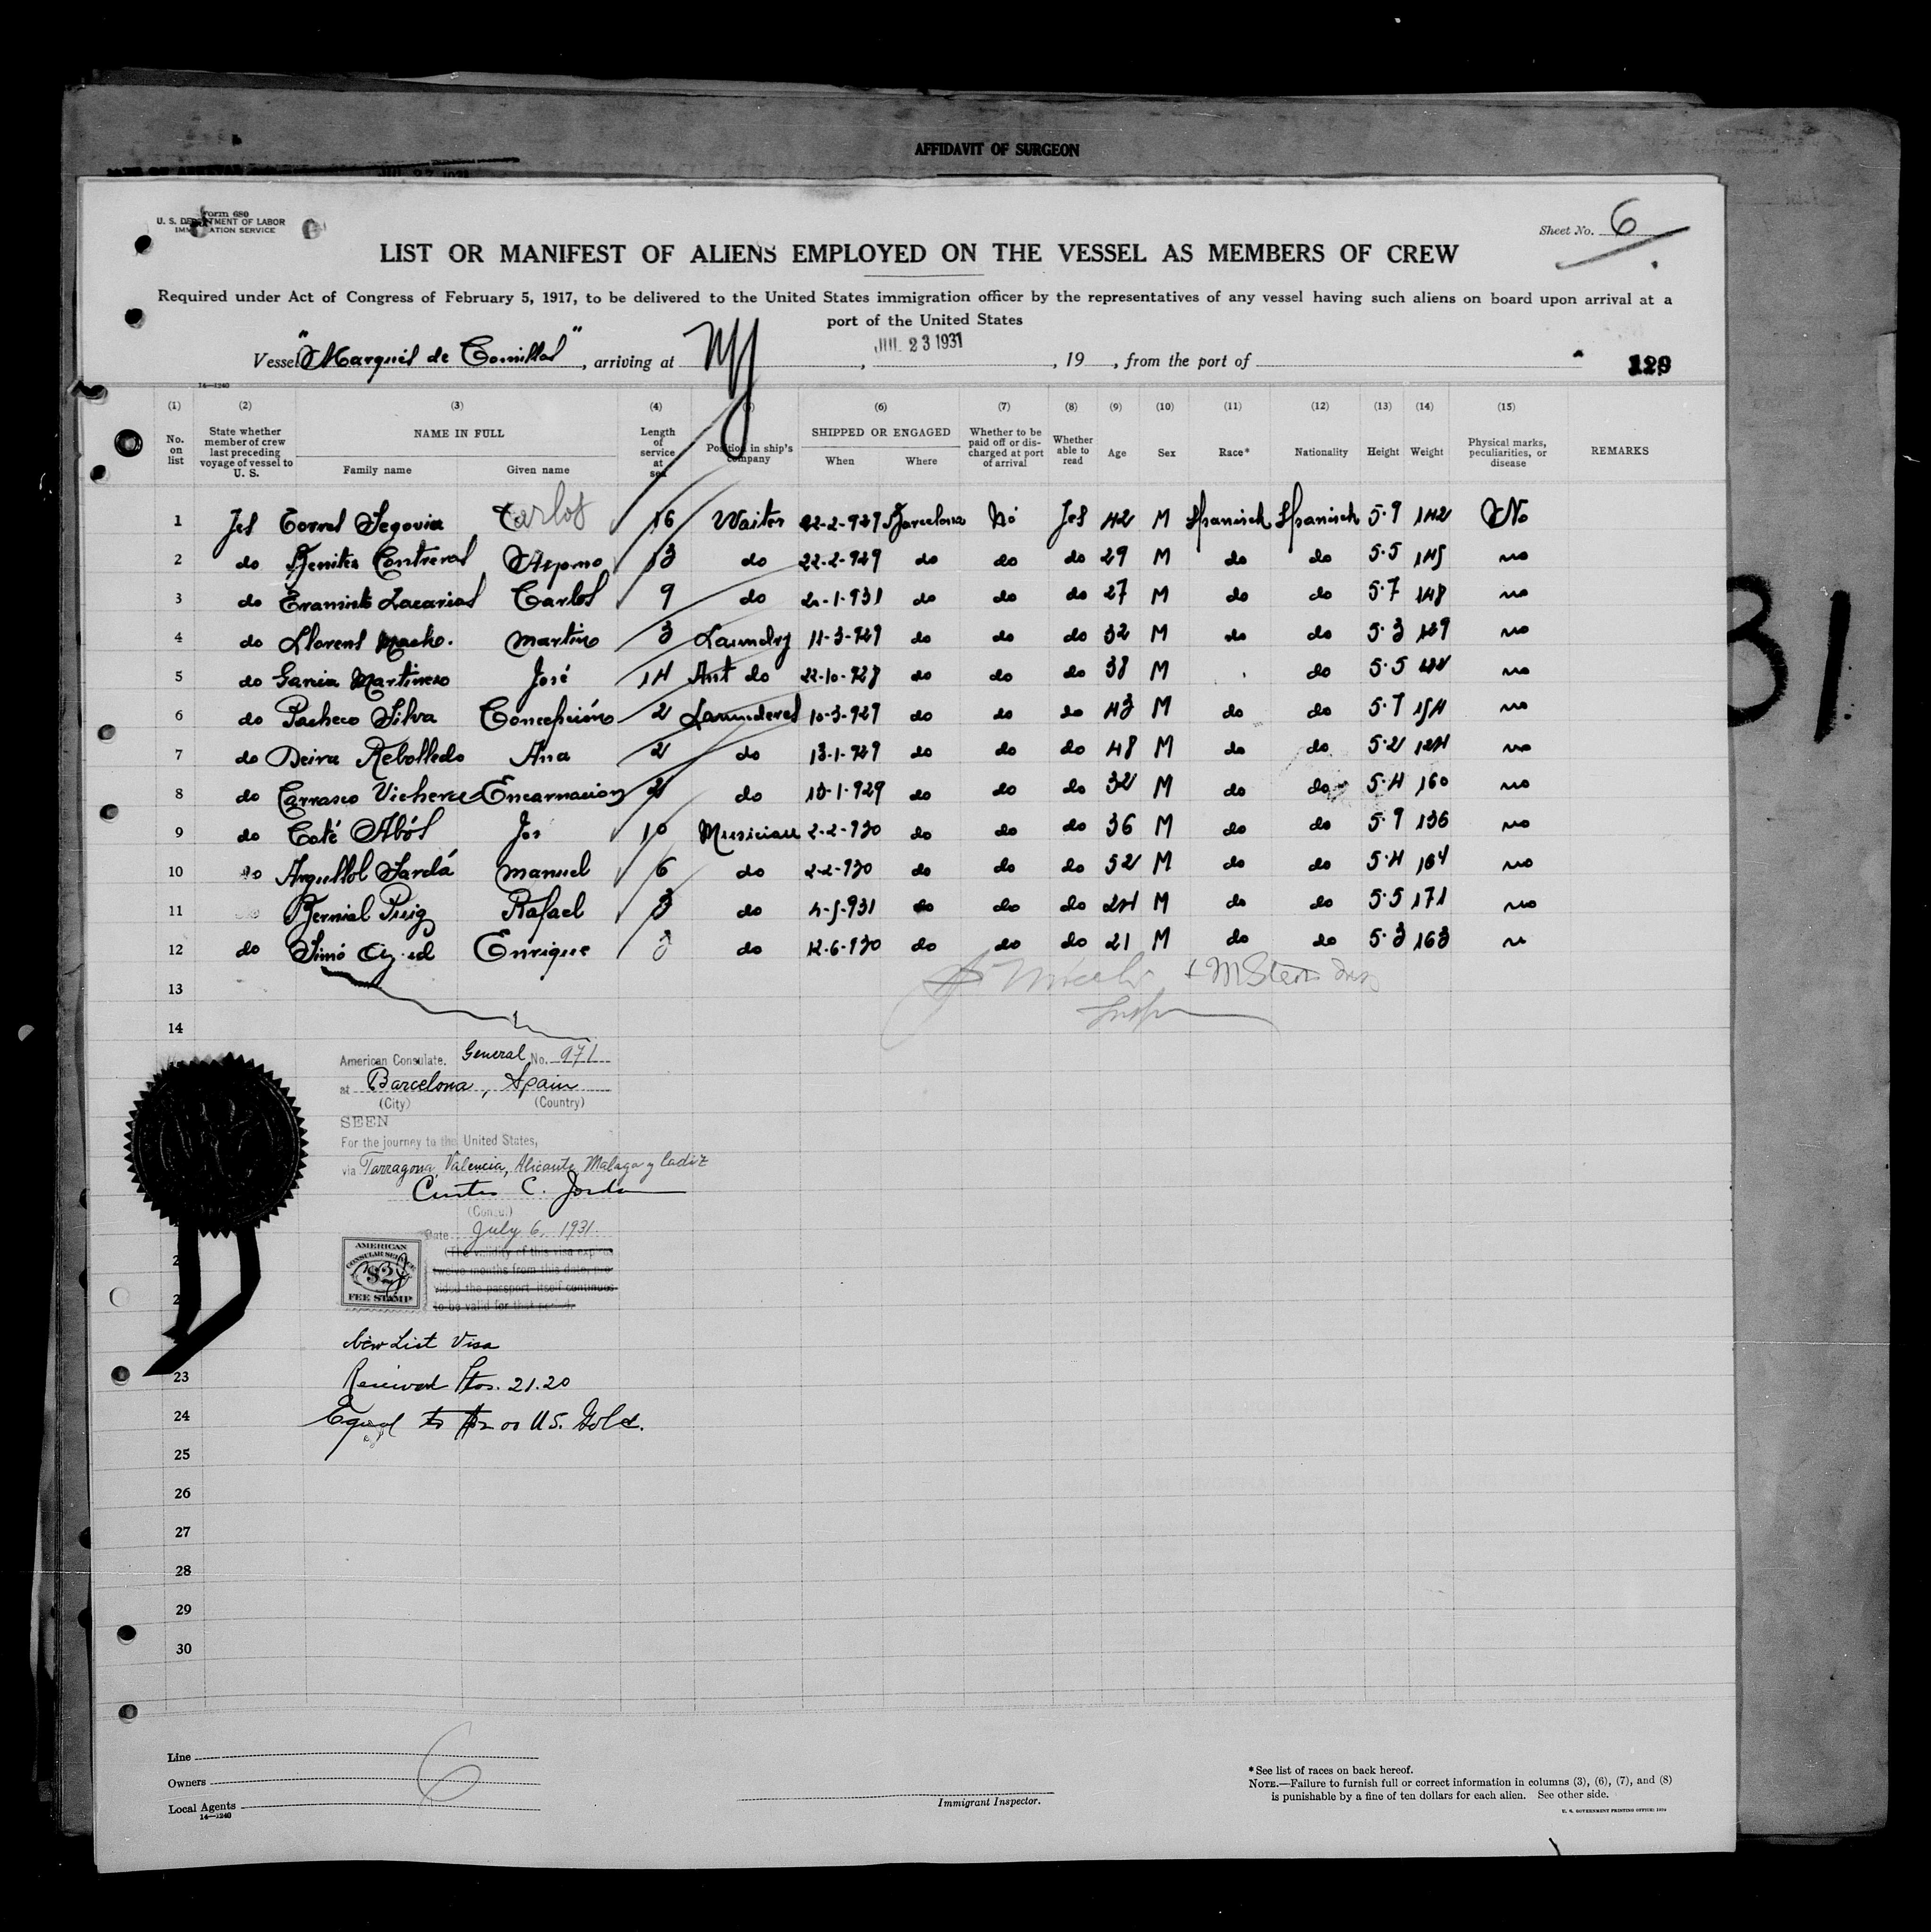 AFFIDAVIT OF SURGEON
JUL 27 1931
Form 680
U. S. DEPARTMENT OF LABOR
IMMIGRATION SERVICE
Sheet No. 6
LIST OR MANIFEST OF ALIENS EMPLOYED ON THE VESSEL AS MEMBERS OF CREW
Required under Act of Congress of February 5, 1917, to be delivered to the United States immigration officer by the representatives of any vessel having such aliens on board upon arrival at a
port of the United States
Vessel "Marqués de Comillas", arriving at NY, JUL 23 1931, 19, from the port of
129
14—1240
(1) (2) (3) (4) (5) (6) (7) (8) (9) (10) (11) (12) (13) (14) (15)
No. on list State whether member of crew last preceding voyage of vessel to U. S. NAME IN FULL Family name Given name Length of service at sea Position in ship's company SHIPPED OR ENGAGED When Where Whether to be paid off or discharged at port of arrival Whether able to read Age Sex Race* Nationality Height Weight Physical marks, peculiarities, or disease REMARKS
1 Yes Torres Segovia Carlos 16 Waiter 22-2-929 Barcelona No Yes 42 M Spanisch Spanisch 5·9 142 No
2 do Benites Contreras 13 do 22-2-929 do do do 29 M do do 5·5 145 no
3 do Zacarias Carlos 9 do 21-1-931 do do do 27 M do do 5·7 148 no
4 do Llorens Macho. Martino 3 Laundry 11-3-929 do do do 32 M do do 5·3 129 no
5 do Garcia Martinez José 14 Ast do 22-10-928 do do do 38 M do 5·5 no
6 do Pacheco Silva Concepción 2 Launderes 10-3-929 do do do 43 M do do 5·7 154 no
7 do Neira Rebolledo Ana 2 do 13-1-929 do do do 48 M do do 5·2 124 no
8 do Carrasco Encarnacion 2 do 13-1-929 do do do 32 M do do 5·4 160 no
9 do Coté Abós Jos 10 Musician 2-2-930 do do do 36 M do do 5·9 136 no
10 do Argullol Sardá Manuel 6 do 2-2-930 do do do 52 M do do 5·4 164 no
11 do Bernial Puig Rafael 3 do 4-5-931 do do do 24 M do do 5·5 171 no
12 do Simó Enrique 3 do 12-6-930 do do do 21 M do do 5·3 163 no
13
14
American Consulate General No. 971
at Barcelona, Spain
(City) (Country)
SEEN
For the journey to the United States,
via Tarragona, Valencia, Alicante, Malaga y Cadiz
Curtis C. Jordan
(Consul)
Date July 6, 1931.
(The validity of this visa expires
twelve months from this date, pro-
vided the passport itself continues
to be valid for that period.
AMERICAN
CONSULAR SERVICE
$2
FEE STAMP
Crew List Visa
23 Received Ptas. 21.20
24 Equal to $2 00 U.S. Gold.
25
26
27
28
29
30
31
Line
Owners
Local Agents
14—1240
6
Immigrant Inspector.
*See list of races on back hereof.
NOTE.—Failure to furnish full or correct information in columns (3), (6), (7), and (8)
is punishable by a fine of ten dollars for each alien. See other side.
U. S. GOVERNMENT PRINTING OFFICE